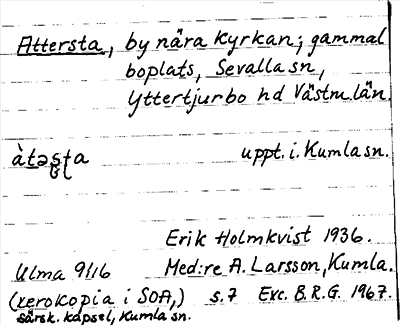 Attersta, by nära Kyrkan; gammal
boplats, Sevalla sn,
Yttertjurbo hd Västm län.
àtəʂʈa uppt. i. Kumla sn.
Erik Holmkvist 1936.
Ulma 91:6 Med:re A. Larsson, Kumla.
(xerokopia i SOA,) s.7 Exc. B.R.G. 1967.
särsk. kapsel, Kumla sn.